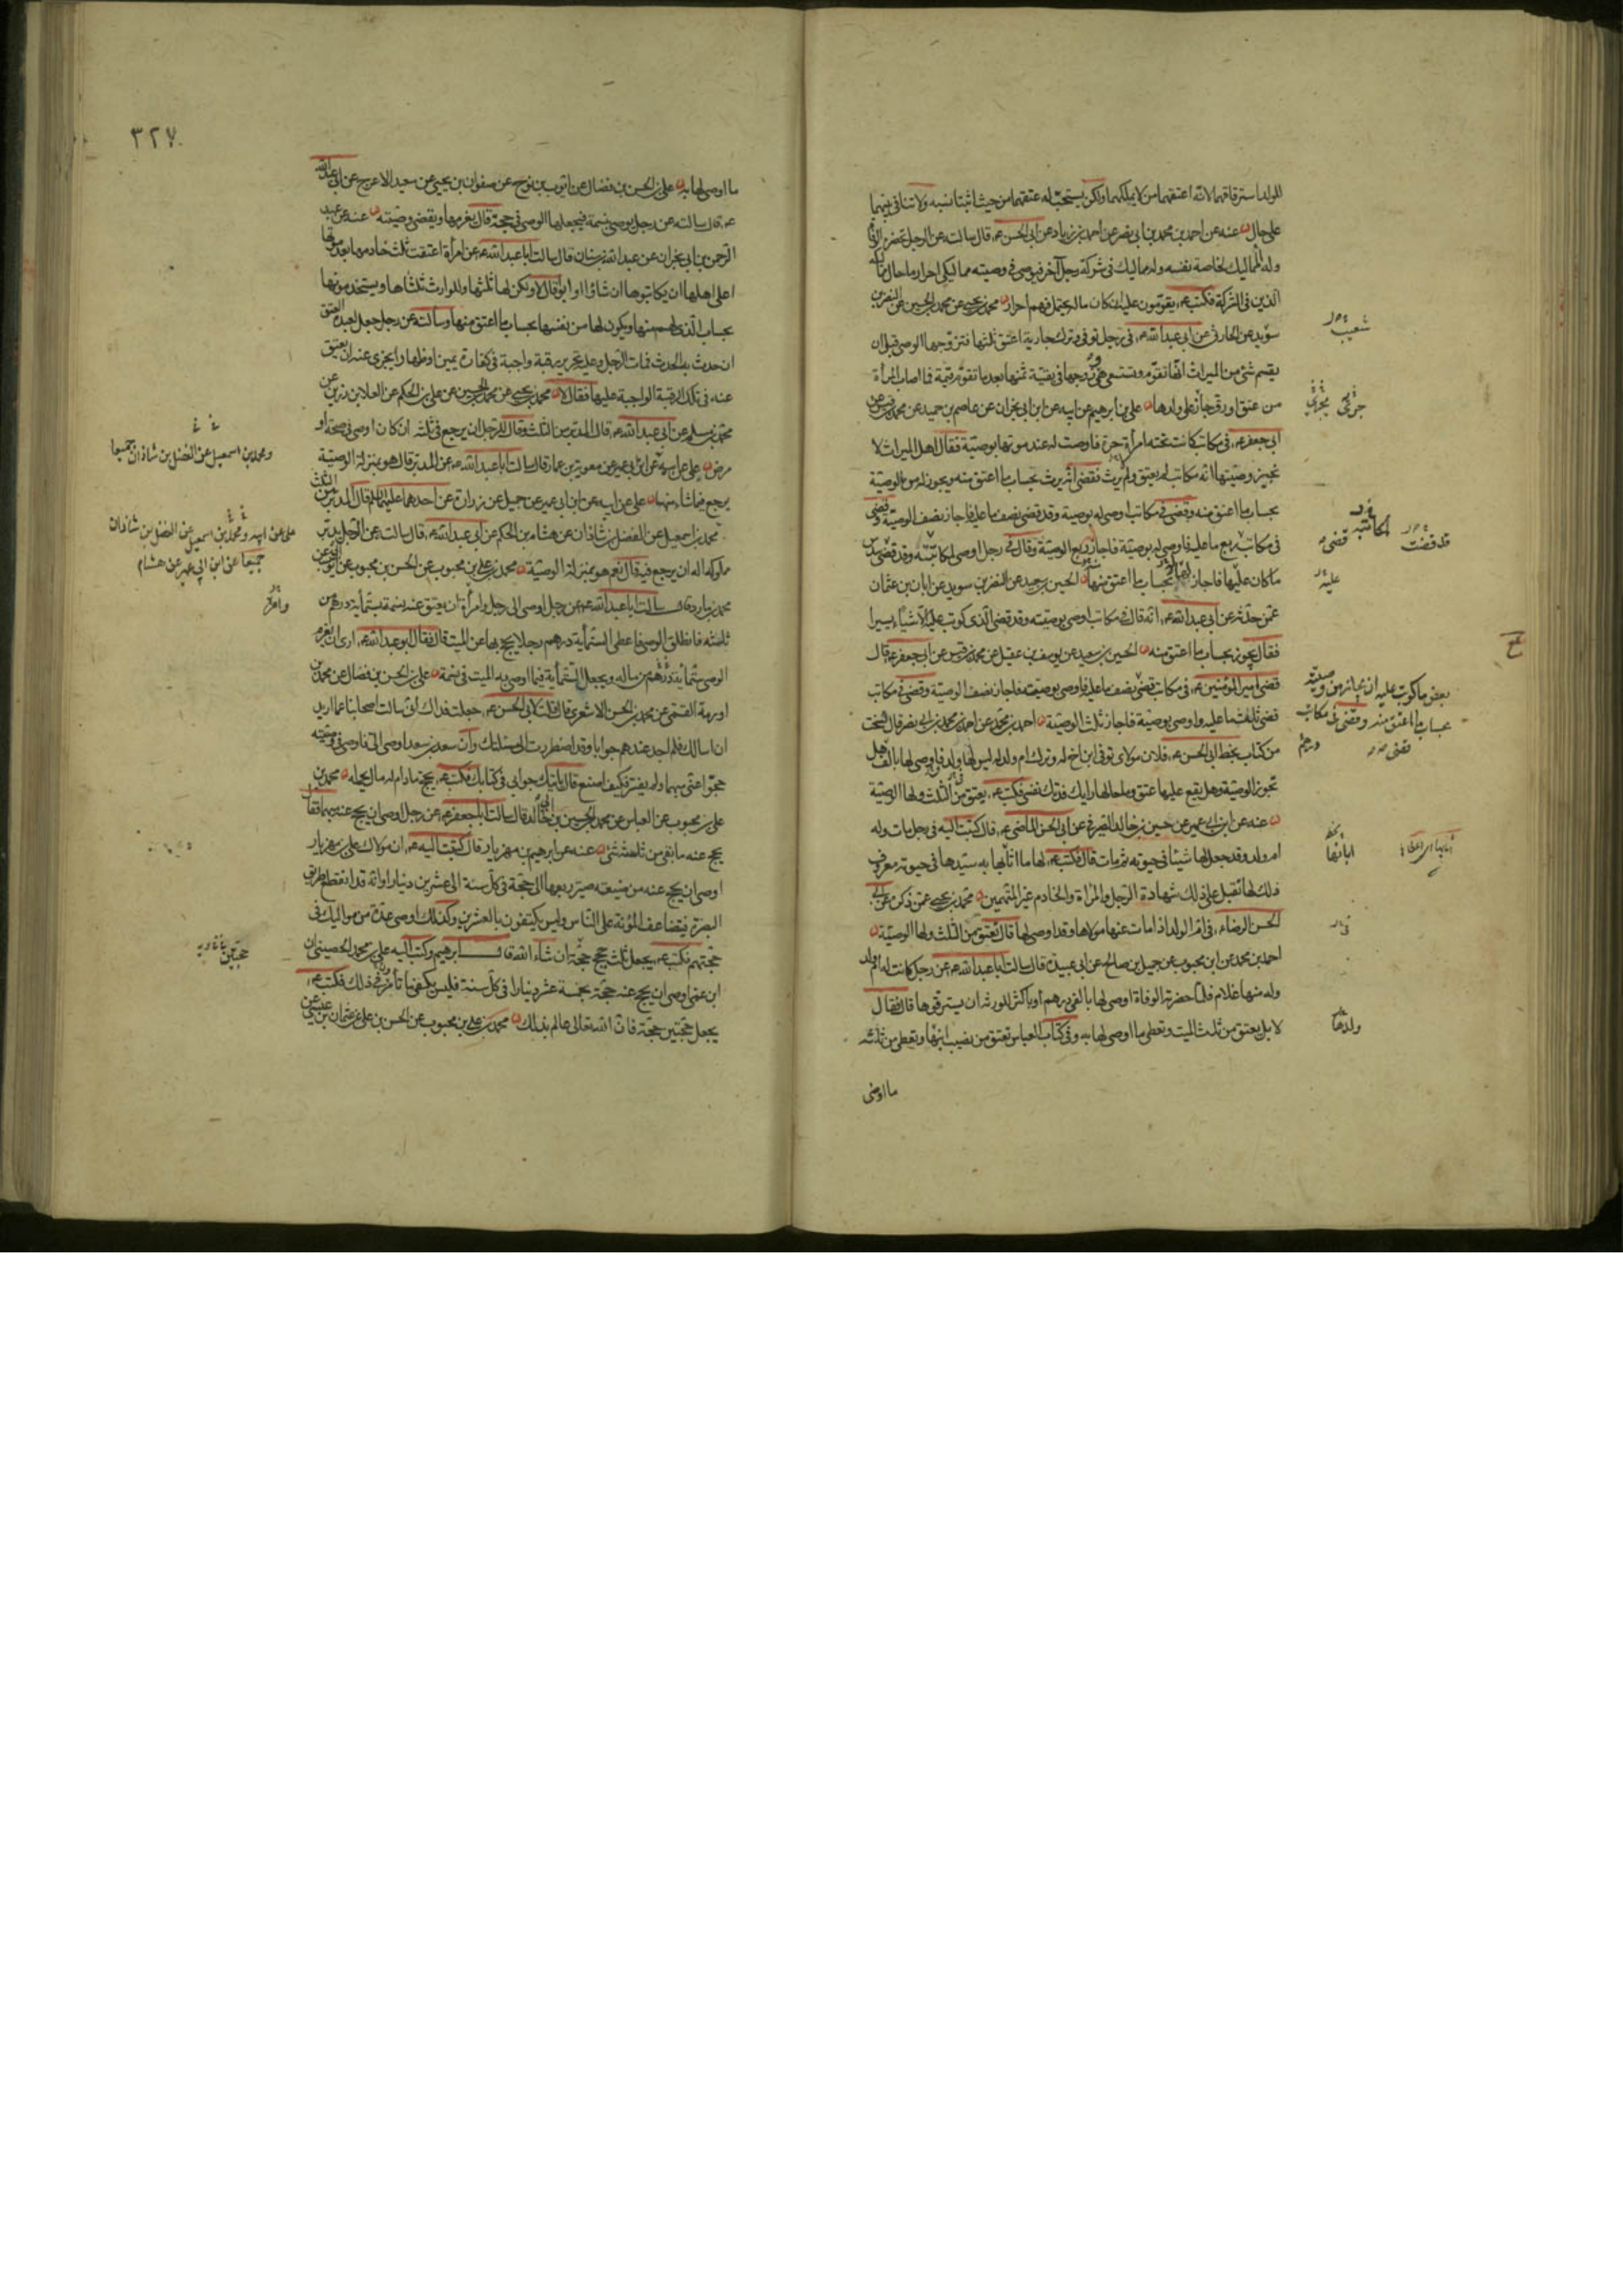 للولد استرقاقهما لانه اعتقهما من لا يملكهما ولكن يستحب له عتقهما من حيث اثبتنا نسبه ولا تنافى بينهما
على حال عنه عن احمد بن محمد بن ابى نصر عن احمد بن زياد عن ابى الحسن ع قال سالته عن الرجل تحضره الوفاة
وله المماليك لخاصة نفسه وله مماليك فى شركة رجل آخر فيوصى فى وصيته مماليكى احرار ما حال مماليكه
الذين فى الشركة فكتب ع يقومون عليه ان كان ماله يحتمل فهم احرار محمد بن يحيى عن محمد بن الحسين عن النضر بن
سويد عن الحارثى عن ابى عبد الله ع فى رجل توفى وترك جارية اعتق ثلثها فتزوجها الوصى قبل ان
يقسم شئ من الميراث انها تقوم وتستسعى هى وزوجها فى بقية ثمنها بعد ما تقوم قيمة فما اصاب المرأة
من عتق او رق جاز على ولدها على بن ابرهيم عن ابيه عن ابن ابى نجران عن عاصم بن حميد عن محمد بن قيس عن
ابى جعفر ع فى مكاتب كانت تحته امرأة حرة فاوصت له عند موتها بوصية فقال اهل الميراث لا
نجيز وصيتها انه مكاتب لم يعتق ولم يرث فقضى انه يرث بحساب ما اعتق منه ويجوز له من الوصية
بحساب ما اعتق منه وقضى فى مكاتب اوصى له بوصية وقد قضى نصف ما عليه فاجاز نصف الوصية وقضى
فى مكاتب ربع ما عليه فاوصى له بوصية فاجاز ربع الوصية وقال فى رجل اوصى لمكاتبته وقد قضى سدس
ما كان عليها فاجاز لها بحساب ما اعتق منها الحسين بن سعيد عن النضر بن سويد عن ابان بن عثمان
عمن حدثه عن ابى عبد الله ع انه قال فى مكاتب اوصى بوصيته وقد قضى الذى كوتب عليه الا شيئا يسيرا
فقال يجوز بحساب ما اعتق منه الحسين بن سعيد عن يوسف بن عقيل عن محمد بن قيس عن ابى جعفر ع قال
قضى امير المؤمنين ع فى مكاتب قضى نصف ما عليه فاوصى بوصيته فاجاز نصف الوصية وقضى فى مكاتب
قضى ثلث ما عليه واوصى بوصية فاجاز ثلث الوصية احمد بن محمد عن احمد بن محمد بن ابى نصر قال نسخت
من كتاب بخط ابى الحسن ع فلان مولاى توفى ابن اخ له وترك ام ولد له ليس لها ولد فاوصى لها بالف هل
تجوز الوصية وهل يقع عليها عتق وما حالها رايك فدتك نفسى فكتب ع يعتق من الثلث ولها الوصية
عنه عن ابن ابى عمير عن حسين بن خالد الصيرفى عن ابى الحسن الماضى ع قال كتبت اليه فى رجل مات وله
ام ولد وقد جعل لها شيئا فى حيوته ثم مات قال فكتب ع لها ما اثابها به سيدها فى حيوته معروف
ذلك لها تقبل على ذلك شهادة الرجل والمرأة والخادم غير المتهمين محمد بن يحيى عمن ذكره عن ابى
الحسن الرضا ع فى ام الولد اذا مات عنها مولاها وقد اوصى لها قال تعتق من الثلث ولها الوصية
احمد بن محمد عن ابن محبوب عن جميل بن صالح عن ابى عبيدة قال سالت ابا عبد الله ع عن رجل كانت له ام ولد
وله منها غلام فلما حضرته الوفاة اوصى لها بالفى درهم او باكثر للورثة ان يسترقوها قال فقال
لا بل يعتق من ثلث الميت وتعطى ما اوصى لها به وفى كتاب العباس تعتق من نصيب ابنها وتعطى من ثلثه
ما اوصى
شعيب
المكاتبته
قد قضت
قضى
عليه
بعض ما كوتب عليه ان يجاز من وصيته
بحساب ما اعتق منه وقضى فى مكاتب
قضى
اثابها
ولدها
٣٢٧
ما اوصى لها به على بن الحسن بن فضال عن ايوب بن نوح عن صفوان بن يحيى عن سعيد الاعرج عن ابى عبد الله
ع قال سالته عن رجل يوصى بنسمة فيجعلها الوصى فى حجة قال يغرمها ويقضى وصيته عنه عن عبد
الرحمن بن ابى نجران عن عبد الله بن سنان قال سالت ابا عبد الله ع عن امرأة اعتقت ثلث خادمها بعد موتها
اعلى اهلها ان يكاتبوها ان شاؤا او ابوا قال لا ولكن لها ثلثها وللوارث ثلثاها ويستخدمونها
بحساب الذى لهم منها ويكون لها من نفسها بحساب ما اعتق منها وسالته عن رجل جعل لعبده العتق
ان حدث به الحدث فمات الرجل وعليه تحرير رقبة واجبة فى كفارة يمين او ظهار ايجزى عنه ان يعتق
عنه فى تلك الرقبة الواجبة عليه فقال لا محمد بن يحيى عن محمد بن الحسين عن على بن الحكم عن العلا بن رزين عن
محمد بن مسلم عن ابى عبد الله ع قال المدبر من الثلث وقال للرجل ان يرجع فى ثلثه ان كان اوصى فى صحة او
مرض على عن ابيه عن ابن ابى عمير عن معوية بن عمار قال سالت ابا عبد الله ع عن المدبر قال هو بمنزلة الوصية
يرجع فيما شاء منها على عن ابيه عن ابن ابى عمير عن جميل عن زرارة عن احدهما عليهما السلم قال المدبر من الثلث
محمد بن اسمعيل عن الفضل بن شاذان عن هشام بن الحكم عن ابى عبد الله ع قال سالته عن الرجل يدبر
مملوكه اله ان يرجع فيه قال نعم هو بمنزلة الوصية محمد بن على بن محبوب عن الحسن بن محبوب عن ابى ايوب عن
محمد بن مارد قال سالت ابا عبد الله ع عن رجل اوصى الى رجل وامرأة ان يعتق عنه نسمة بستمأية درهم من
ثلثه فانطلق الوصى فاعطى الستمأية درهم رجلا يحج بها عن الميت قال فقال ابو عبد الله ع ارى ان يغرم
الوصى ستمأية درهم من ماله ويجعل الستمأية فيما اوصى به الميت فى نسمة على بن الحسن بن فضال عن محمد بن
اورمة القمى عن محمد بن الحسن الاشعرى قال قلت لابى الحسن ع جعلت فداك انى سالت اصحابنا عما اريد
ان اسالك فلم اجد عندهم جوابا وقد اضطررت الى مسئلتك وان سعد بن سعد اوصى الى فاوصى فى وصيته
حجوا عنى مبهما ولم يفسر فكيف اصنع قال ياتيك جوابى فى كتابك فكتب ع يحج ما دام له مال يحمله محمد بن
على بن محبوب عن العباس عن محمد بن الحسين بن ابى خالد قال سالت ابا جعفر ع عن رجل اوصى ان يحج عنه مبهما فقال
يحج عنه ما بقى من ثلثه شئ عنه عن ابرهيم بن مهزيار قال كتبت اليه ع ان مولاك على بن مهزيار
اوصى ان يحج عنه من ضيعته صير ربعها الى حجة فى كل سنة الى عشرين دينارا وانه قد انقطع طريق
البصرة فيتضاعف المؤنة على الناس وليس يكتفون بالعشرين وكذلك اوصى عدة من مواليك فى
حجتهم فكتب ع يجعل ثلث حجج حجة ان شاء الله قال ابرهيم وكتب اليه على بن محمد الحصينى ان
ابن عمى اوصى ان يحج عنه حجة بخمسة عشر دينارا فى كل سنة فليس يكفى ما تأمر فى ذلك فكتب ع
يجعل حجتين حجة فان الله تعالى عالم بذلك محمد بن على بن محبوب عن الحسن بن على عن عثمان بن عيسى عن
ومحمد بن اسمعيل عن الفضل بن شاذان جميعا
على عن ابيه ومحمد بن اسمعيل عن الفضل بن شاذان
جميعا عن ابن ابى عمير عن هشام
وامرأة
حجتين